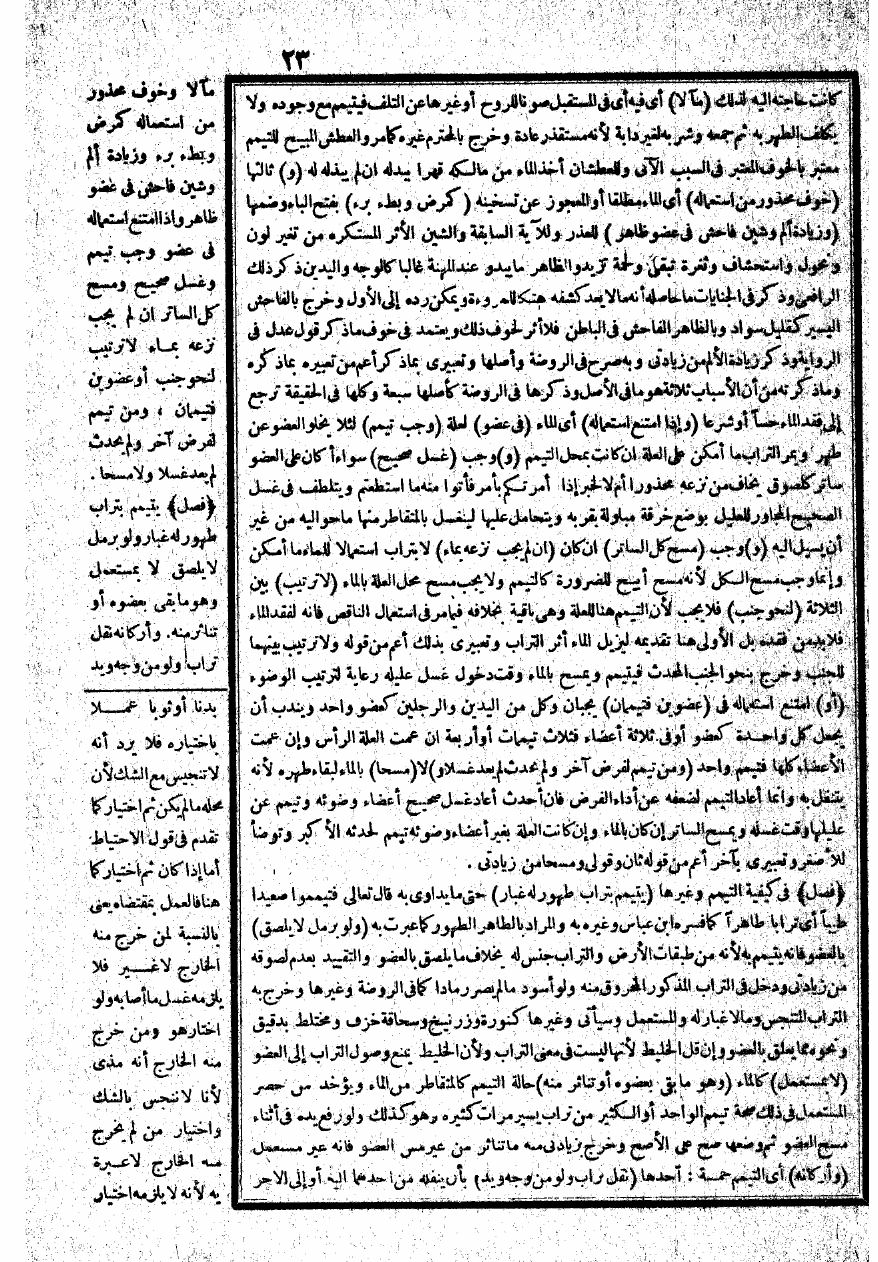 ٢٣
كانت حاجته اليه لذلك (مآلا) أى فيه أى فى المستقبل صونا للروح أو غيرها عن التلف فيتيمم مع وجوده ولا
يكلف الطهر به ثم جمعه وشربه لغير دابة لأنه مستقذر عادة وخرج بالمحترم غيره كما مر والعطش المبيح للتيمم
معتبر بالخوف المعتبر فى السبب الآتى وللعطشان أخذ الماء من مالكه قهرا ببدله ان لم يبذله له (و) ثالثها
(خوف محذور من استعماله) أى الماء مطلقا أو المعجوز عن تسخينه (كمرض وبطء برء) بفتح الباء وضمها
(وزيادة ألم وشين فاحش فى عضو ظاهر) للعذر وللآية السابقة والشين الأثر المستكره من تغير لون
ونحول واستحشاف وثغرة تبقى ولحمة تزيد والظاهر ما يبدو عند المهنة غالبا كالوجه واليدين ذكر ذلك
الرافعى وذكر فى الجنايات ما حاصله أنه ما لا يعد كشفه هتكا للمروءة ويمكن رده إلى الأول وخرج بالفاحش
اليسير كقليل سواد وبالظاهر الفاحش فى الباطن فلا أثر لخوف ذلك ويعتمد فى خوف ما ذكر قول عدل فى
الرواية وذكر زيادة الألم من زيادتى وبه صرح فى الروضة وأصلها وتعبيرى بما ذكر أعم من تعبيره بما ذكره
وما ذكرته من أن الأسباب ثلاثة هو ما فى الأصل وذكرها فى الروضة كأصلها سبعة وكلها فى الحقيقة ترجع
إلى فقد الماء حسا أو شرعا (وإذا امتنع استعماله) أى الماء (فى عضو) لعلة (وجب تيمم) لئلا يخلو العضو عن
طهر ويمر التراب ما أمكن على العلة ان كانت بمحل التيمم (و) وجب (غسل صحيح) سواء أكان على العضو
ساتر كلصوق يخاف من نزعه محذورا أم لا لخبر إذا أمرتكم بأمر فأتوا منه ما استطعتم ويتلطف فى غسل
الصحيح المجاور للعليل بوضع خرقة مبلولة بقربه ويتحامل عليها لينغسل بالمتقاطر منها ما حواليه من غير
أن يسيل اليه (و) وجب (مسح كل الساتر) ان كان (ان لم يجب نزعه بماء) لا بتراب استعمالا للماء ما أمكن
وإنما وجب مسح الكل لأنه مسح أبيح للضرورة كالتيمم ولا يجب مسح محل العلة بالماء (لا ترتيب) بين
الثلاثة (لنحو جنب) فلا يجب لأن التيمم هنا للعلة وهى باقية بخلافه فيما مر فى استعمال الناقص فانه لفقد الماء
فلا بد من فقده بل الأولى هنا تقديمه ليزيل الماء أثر التراب وتعبيرى بذلك أعم من قوله ولا ترتيب بينهما
للجنب وخرج بنحو الجنب المحدث فيتيمم ويمسح بالماء وقت دخول غسل عليله رعاية لترتيب الوضوء
(أو) امتنع استعماله فى (عضوين فتيممان) يجبان وكل من اليدين والرجلين كعضو واحد ويندب أن
يجعل كل واحدة كعضو أو فى ثلاثة أعضاء فثلاث تيممات أو أربعة ان عمت العلة الرأس وإن عمت
الأعضاء كلها فتيمم واحد (ومن تيمم لفرض آخر ولم يحدث لم يعد غسلا و) لا (مسحا) بالماء لبقاء طهره لأنه
يتنفل به وانما أعاد التيمم لضعفه عن أداء الفرض فان أحدث أعاد غسل صحيح أعضاء وضوئه وتيمم عن
عليلها وقت غسله ويمسح الساتر إن كان بالماء وإن كانت العلة بغير أعضاء وضوئه تيمم لحدثه الأكبر وتوضأ
للأصغر وتعبيرى بآخر أعم من قوله ثان وقولى ومسحا من زيادتى .
﴿فصل﴾ فى كيفية التيمم وغيرها (يتيمم بتراب طهور له غبار) حتى ما يداوى به قال تعالى فتيمموا صعيدا
طيبا أى ترابا طاهرا كما فسره ابن عباس وغيره به والمراد بالطاهر الطهور كما عبرت به (ولو برمل لا يلصق)
بالعضو فانه يتيمم به لأنه من طبقات الأرض والتراب جنس له بخلاف ما يلصق بالعضو والتقييد بعدم لصوقه
من زيادتى ودخل فى التراب المذكور المحروق منه ولو أسود ما لم يصر رمادا كما فى الروضة وغيرها وخرج به
التراب المتنجس وما لا غبار له والمستعمل وسيأتى وغيرها كنورة وزرنيخ وسحاقة خزف ومختلط بدقيق
ونحوه مما يعلق بالعضو وإن قل الخليط لأنها ليست فى معنى التراب ولأن الخليط يمنع وصول التراب إلى العضو
(لا بمستعمل) كالماء (وهو ما بقى بعضوه أو تناثر منه) حالة التيمم كالمتقاطر من الماء ويؤخذ من حصر
المستعمل فى ذلك صحة تيمم الواحد أو الكثير من تراب يسير مرات كثيره وهو كذلك ولو رفع يده فى أثناء
مسح العضو ثم وضعها صح على الأصح وخرج بزيادتى منه ما تناثر من غير مس العضو فانه غير مستعمل
(وأركانه) أى التيمم خمسة : أحدها (نقل تراب ولو من وجه ويد) بأن ينقله من احدهما اليه أو إلى الآخر
مآلا وخوف محذور
من استعماله كمرض
وبطء برء وزيادة ألم
وشين فاحش فى عضو
ظاهر وإذا امتنع استعماله
فى عضو وجب تيمم
وغسل صحيح ومسح
كل الساتر ان لم يجب
نزعه بماء لا ترتيب
لنحو جنب أو عضوين
فتيممان ، ومن تيمم
لفرض آخر ولم يحدث
لم يعد غسلا ولا مسحا .
﴿فصل﴾ يتيمم بتراب
طهور له غبار ولو برمل
لا يلصق لا بمستعمل
وهو ما بقى بعضوه أو
تناثر منه. وأركانه نقل
تراب ولو من وجه ويد
بدنا أو ثوبا عملا
باختياره فلا يرد أنه
لا تنجيس مع الشك لأن
محله ما لم يكن ثم اختيار كما
تقدم فى قول الاحتياط
أما إذا كان ثم اختيار كما
هنا فالعمل بمقتضاه يعنى
بالنسبة لمن خرج منه
الخارج لا غير فلا
يلزمه غسل ما أصابه ولو
اختار هو ومن خرج
منه الخارج أنه مذى
لأنا لا ننجس بالشك
واختيار من لم يخرج
منه الخارج لا عبرة
به لأنه لا يلزمه اختيار